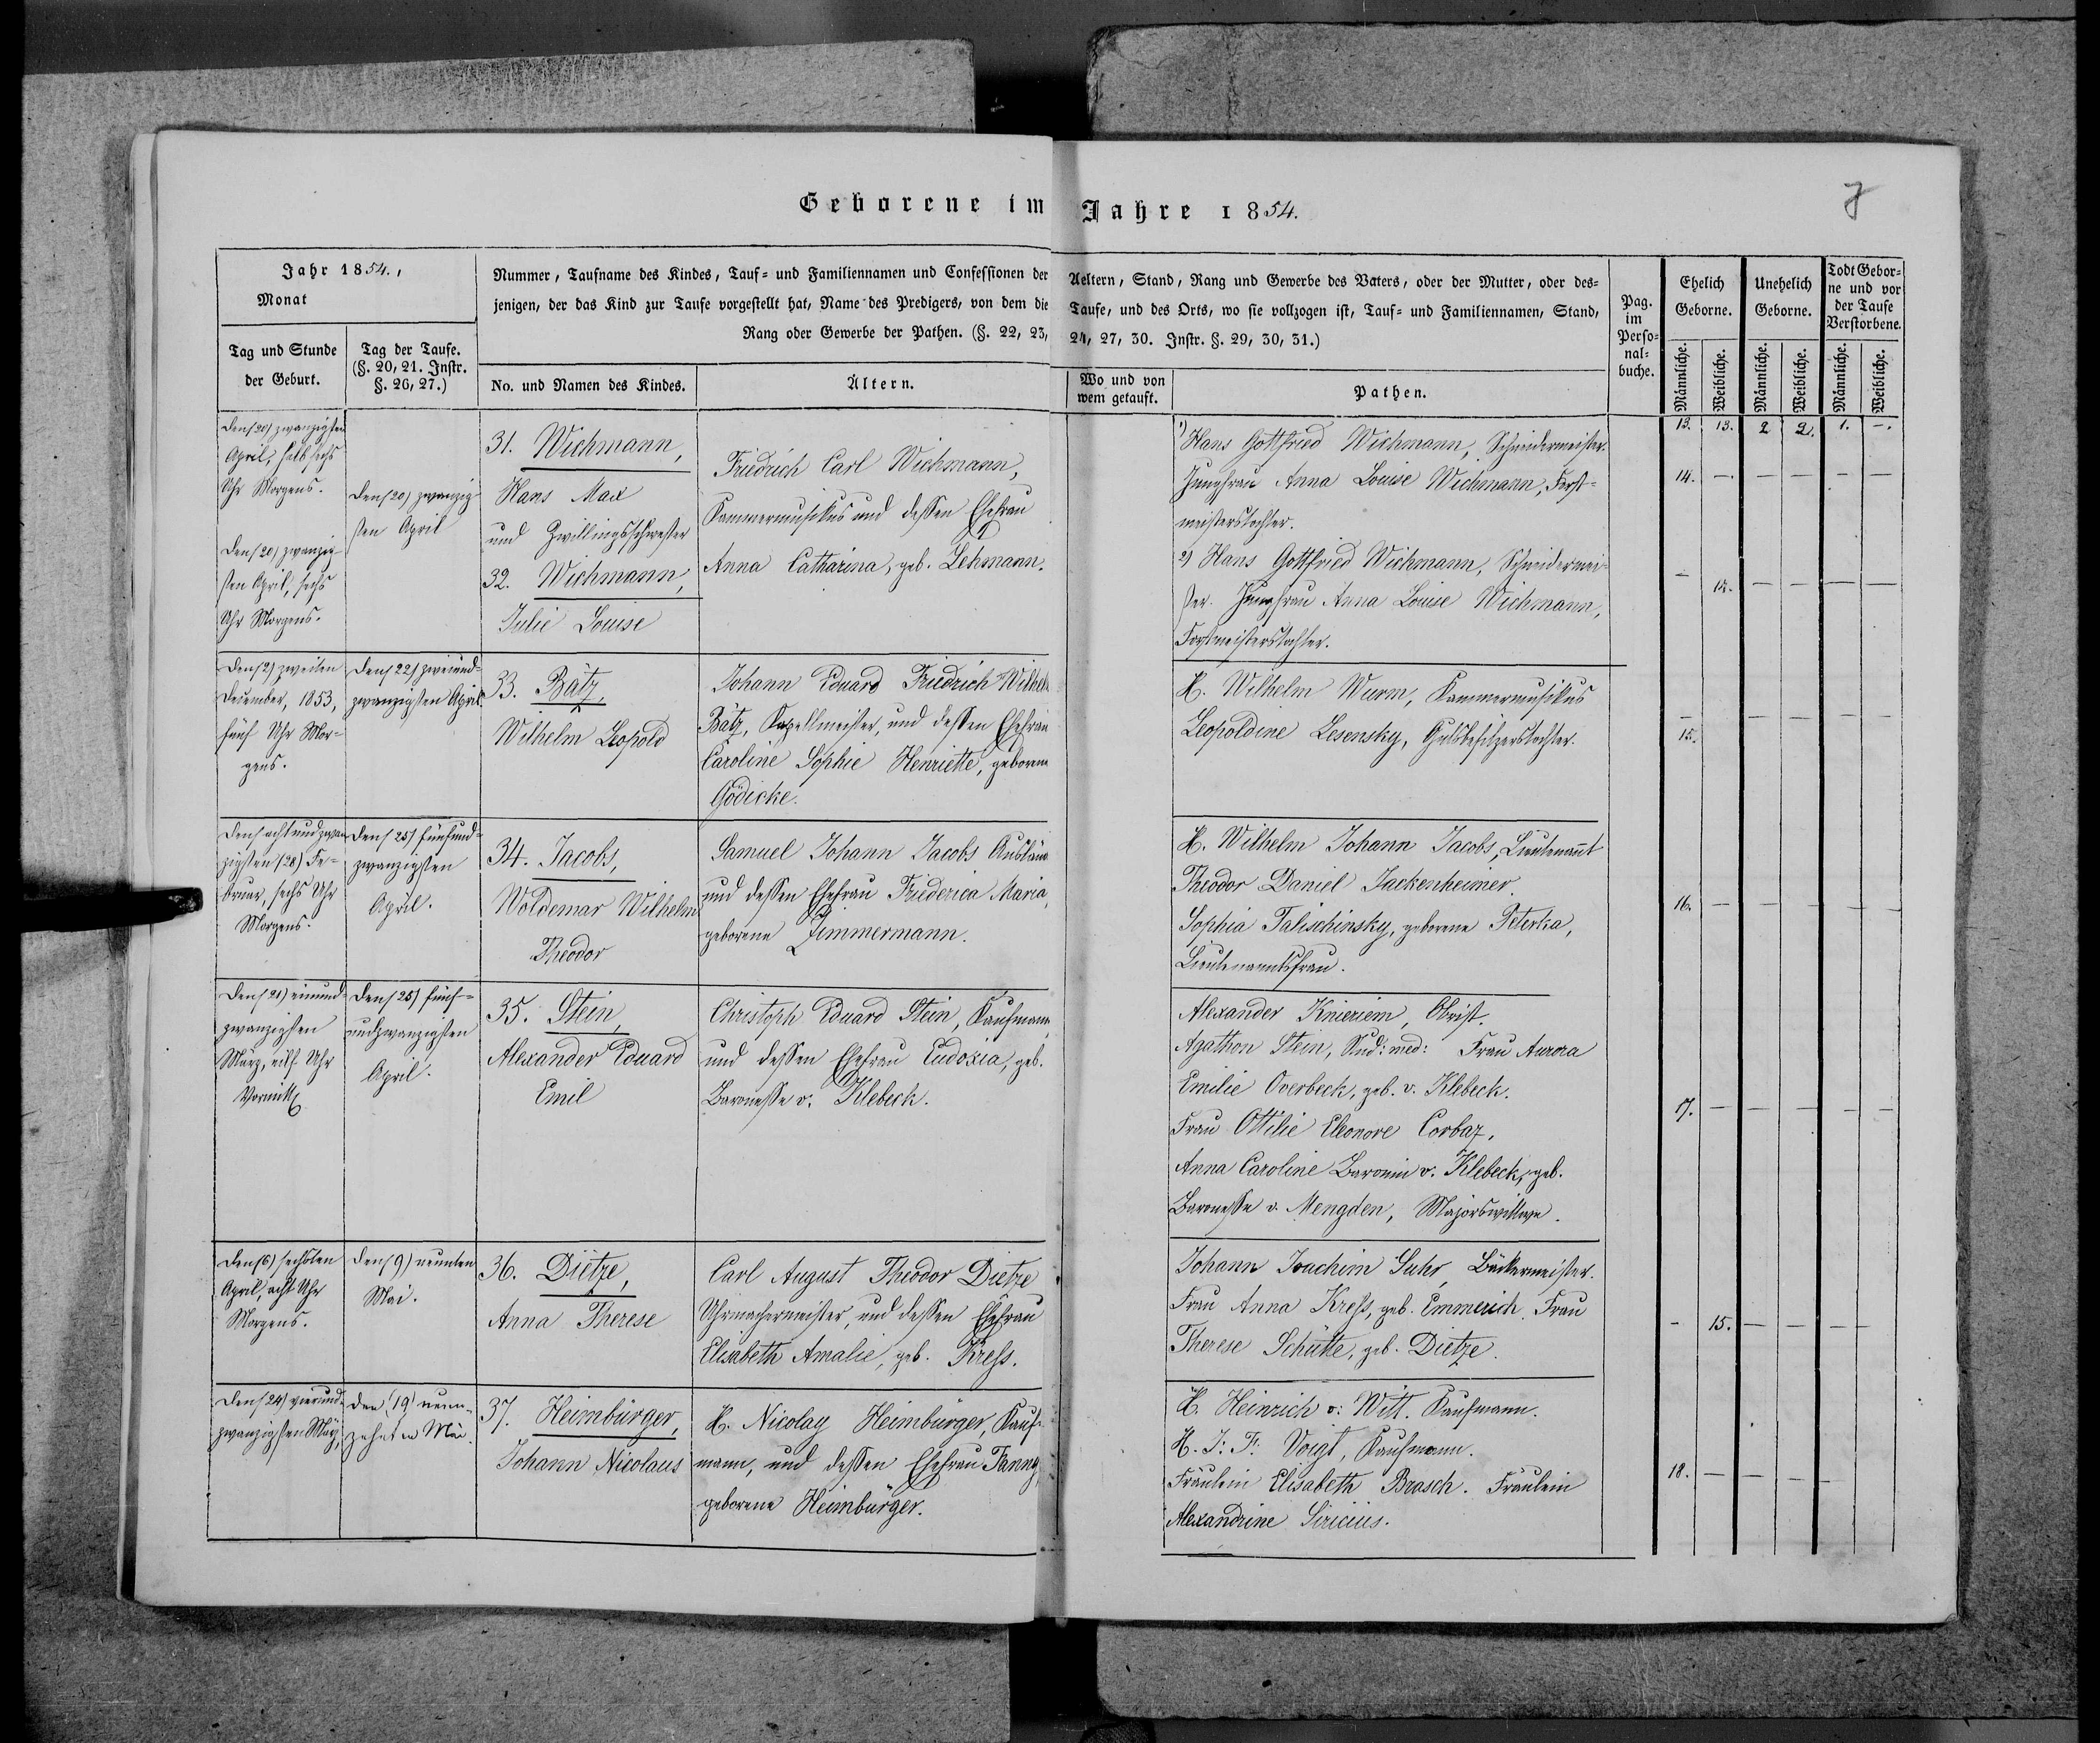 Geborene im Jahre 1854.
7
Jahr 1854.,
Monat
Tag und Stunde
der Geburt.
Tag der Taufe.
(§. 20, 21. Instr.
§. 26, 27.)
Nummer, Taufname des Kindes, Tauf- und Familiennamen und Confessionen der Aeltern, Stand, Rang und Gewerbe des Vaters, oder der Mutter, oder des-
jenigen, der das Kind zur Taufe vorgestellt hat, Name des Predigers, von dem die Taufe, und des Orts, wo sie vollzogen ist, Tauf- und Familiennamen, Stand,
Rang oder Gewerbe der Pathen. (§. 22, 23, 24, 27, 30. Instr. §. 29, 30, 31.)
No. und Namen des Kindes.
Ältern.
Wo und von
wem getauft.
Pathen.
Pag.
im
Perso-
nal-
buche.
Ehelich
Geborne.
Unehelich
Geborne.
Todt Gebor-
ne und vor
der Taufe
Verstorbene.
Männliche.
Weibliche.
Männliche.
Weibliche.
Männliche.
Weibliche.
13. 13. 2 2. 1. -.
Den (20) zwanzigsten
April, halb sechs
Uhr Morgens.
Den (20) zwanzig-
sten April, sechs
Uhr Morgens.
Den (20) zwanzig-
sten April
31. Wichmann,
Hans Max
und Zwillingsschwester
32. Wichmann,
Julie Louise
Friedrich Carl Wichmann,
Kammermusikus und dessen Ehefrau
Anna Catharina, geb. Lehmann.
1) Hans Gottfried Wichmann, Schneidermeister.
Jungfrau Anna Louise Wichmann, Forst-
meisterstochter.
2) Hans Gottfried Wichmann, Schneidermei-
ster. Jungfrau Anna Louise Wichmann,
Forstmeisterstochter.
14. — — — — —
— 14. — — — —
Den (2) zweiten
December, 1853,
fünf Uhr Mor-
gens.
Den (22) zweiund-
zwanzigsten April.
33. Bätz,
Wilhelm Leopold
Johann Eduard Friedrich Wilhelm
Bätz, Kapellmeister, und dessen Ehefrau
Caroline Sophie Henriette, geborene
Gödicke.
H. Wilhelm Wurm, Kammermusikus
Leopoldine Lesensky, Gutsbesitzerstochter.
15. — — — — —
Den achtundzwan-
zigsten (28) Fe-
bruar, sechs Uhr
Morgens.
Den (25) fünfund-
zwanzigsten
April.
34. Jacobs,
Woldemar Wilhelm
Theodor
Samuel Johann Jacobs Auslän
und dessen Ehefrau Friederica Maria,
geborene Zimmermann.
H. Wilhelm Johann Jacobs, Lieutenant
Theodor Daniel Jackenheimer.
Sophia Talischinsky, geborene Peterka,
Lieutenantsfrau.
16. — — — — —
Den (21) einund-
zwanzigsten
März, eilf Uhr
Vormitt
Den (25) fünf-
undzwanzigsten
April.
35. Stein,
Alexander Eduard
Emil
Christoph Eduard Stein, Kaufmann
und dessen Ehefrau Eudoxia, geb.
Baronesse v. Klebeck.
Alexander Knieriem, Obrist.
Agathon Stein, Stud: med: Frau Aurora
Emilie Overbeck, geb. v. Klebeck.
Frau Ottilie Eleonore Corbaz.
Anna Caroline Baronin v. Klebeck, geb.
Baronesse v. Mengden, Majorswittwe.
17. — — — — —
Den (6) sechsten
April, acht Uhr
Morgens.
Den (9) neunten
Mai.
36. Dietze,
Anna Therese
Carl August Theodor Dietze
Uhrmachermeister, und dessen Ehefrau
Elisabeth Amalie, geb. Kress.
Johann Joachim Suhr, Bäckermeister.
Frau Anna Kress, geb. Emmerich. Frau
Therese Schütte, geb. Dietze.
- 15. — — — —
Den (24) vierund-
zwanzigsten März,
Den (19) neun-
zehnten Mai.
37. Heimbürger,
Johann Nicolaus
H. Nicolay Heimbürger, Kauf-
mann, und dessen Ehefrau Fanny,
geborene Heimbürger.
H. Heinrich v. Witt. Kaufmann.
H. J: Fr: Voigt, Kaufmann.
Fräulein Elisabeth Brasch. Fräulein
Alexandrine Siricius.
18. — — — —